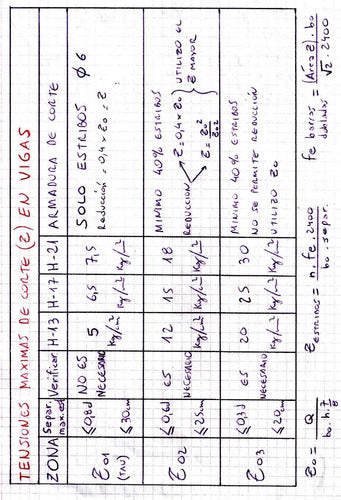 TENSIONES MAXIMAS DE CORTE (Z) EN VIGAS
ZONA
Separ. max. es
Verificar
H-13
H-17
H-21
ARMADURA DE CORTE
Z 01
(TAU)
≤0,8d
≤30cm
NO ES
NECESARIO
5
Kg/cm²
6,5
Kg/cm²
7,5
Kg/cm²
SOLO ESTRIBOS Ø 6
Reducción = 0,4 x Zo = Z
Z 02
≤0,6d
≤25cm
ES
NECESARIO
12
Kg/cm²
15
Kg/cm²
18
Kg/cm²
MINIMO 40% ESTRIBOS
REDUCCION
Z = 0,4 x Zo
Z = Zo²/Zo2
UTILIZO EL
Z MAYOR
Z 03
≤0,3d
≤20cm
ES
NECESARIO
20
Kg/cm²
25
Kg/cm²
30
Kg/cm²
MINIMO 40% ESTRIBOS
NO SE PERMITE REDUCCIÓN
UTILIZO Zo
Zo = Q / bo . h . 7/8
Z ESTRIBOS = n . fe . 2400 / bo . separ.
Fe barras dobladas = (Área Z) . bo / √2 . 2400